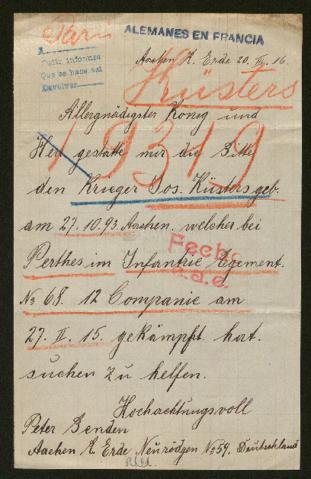 Paris
ALEMANES EN FRANCIA
A
Pedir informes
Que se hace así
Devolver
Aachen R. Erde 20. VI. 16.
Küsters
Allergnädigster König und
19319
Herr gestatte mir die Bitte
den Krieger Jos. Küsters geb.
am 27.10.93 Aachen. welcher bei
Perthes im Infantrie Regement.
No 68. 12 Companie am
Fecb.
27. II. 15. gekämpft hat.
suchen zu helfen.
Hochachtungsvoll
Peter Benden
Aachen R. Erde Neurödgen No 59. Deutschland